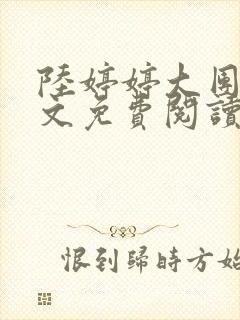 陸婷婷大團
文免費閱讀
恨到歸時方始